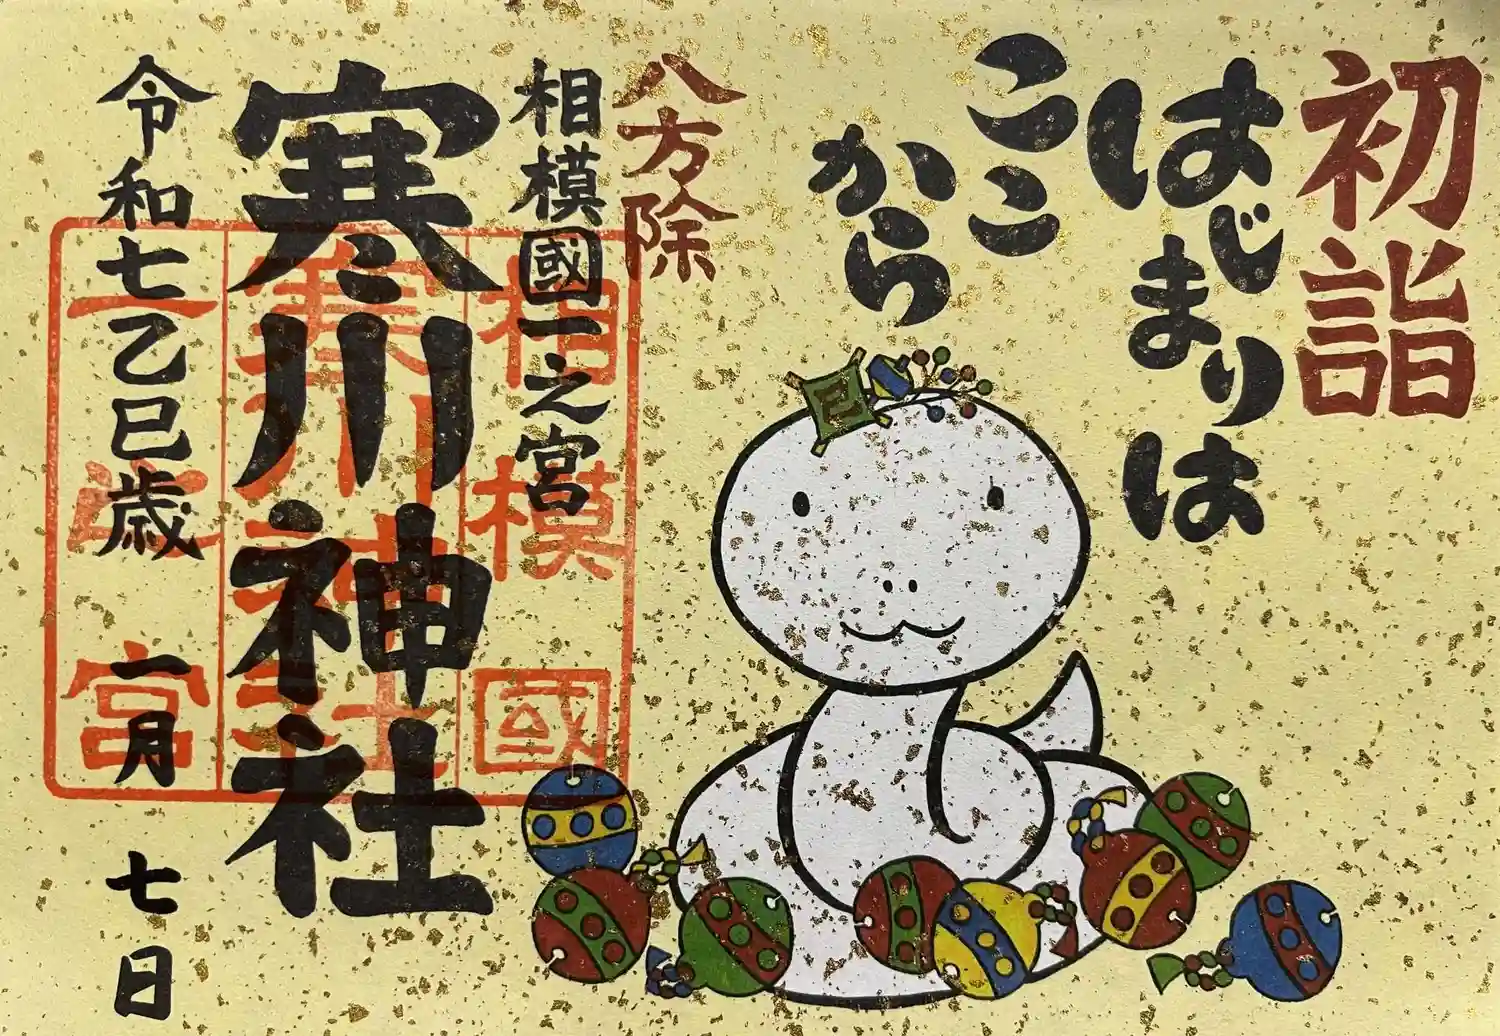 初詣
はじまりは
ここ
から
八方除
相模國一之宮
寒川神社
令和七乙巳歳 一月 七日
巳
相模國
寒川神社
一之宮